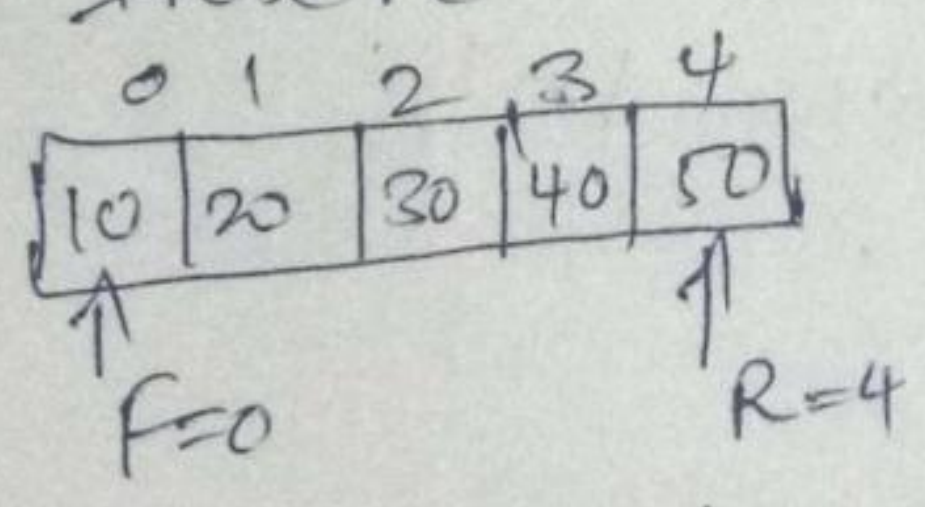 0 1 2 3 4
10 20 30 40 50
F=0 R=4